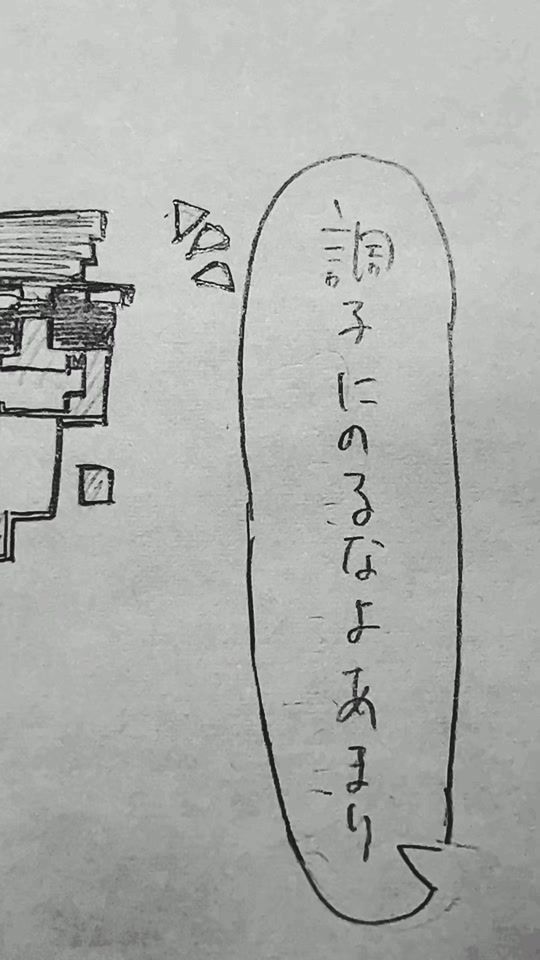 調子にのるなよあまり